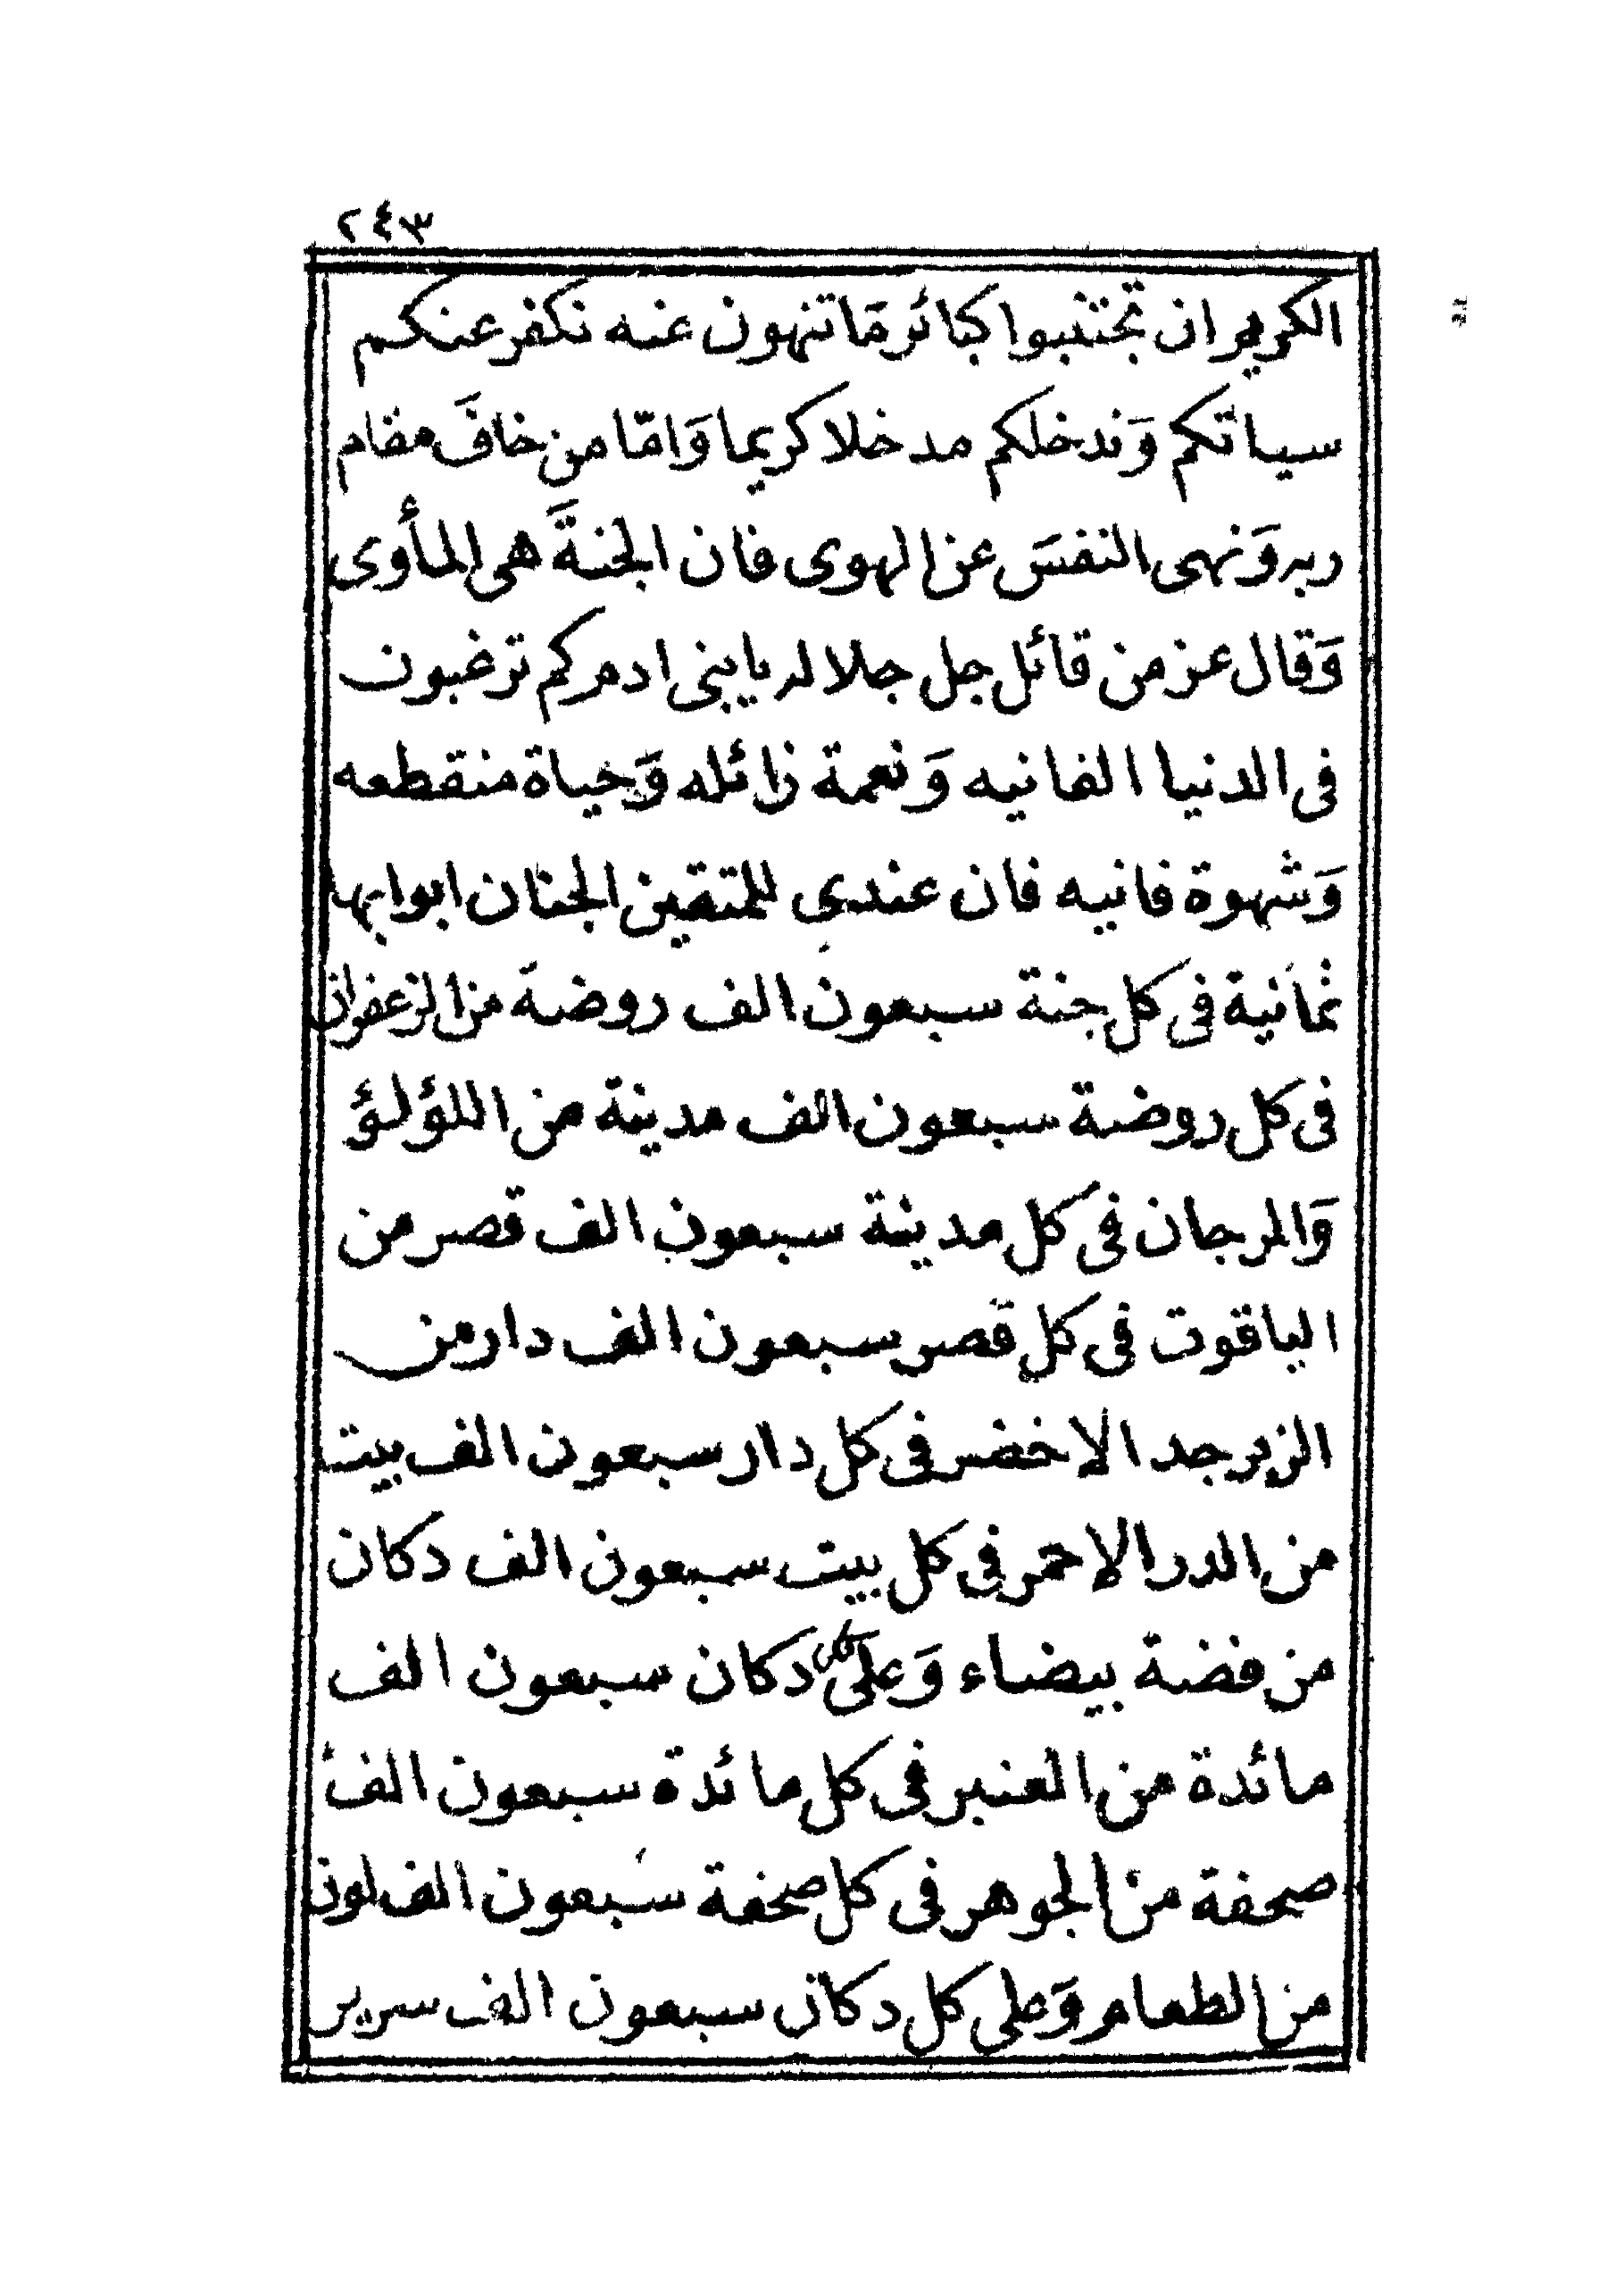 ٢٤٣
الكريم ان تجتنبوا كبائر مَا تنهون عنه نكفر عنكم
سياتكم وَندخلكم مدخلا كريما وَامّا من خافَ مقام
ربه وَنهى النفسَ عن الهوى فان الجنةَ هى المأوى
وَقال عز من قائل جل جلاله يا بنى ادم كم ترغبون
فى الدنيا الفانيه وَنعمة زائله وَحياة منقطعه
وَشهوة فانيه فان عندى للمتقين الجنان ابوابها
ثمانية فى كل جنة سبعون الف روضة من الزعفران
فى كل روضة سبعون الف مدينة من اللؤلؤ
وَالمرجان فى كل مدينة سبعون الف قصر من
الياقوت فى كل قصر سبعون الف دار من
الزبرجد الاخضر فى كل دار سبعون الف بيت
من الدر الاحمر فى كل بيت سبعون الف دكان
من فضة بيضاء وَعلى كل دكان سبعون الف
مائدة من العنبر فى كل مائدة سبعون الف
صحفة من الجوهر فى كل صحفة سبعون الف لون
من الطعام وَعلى كل دكان سبعون الف سرير